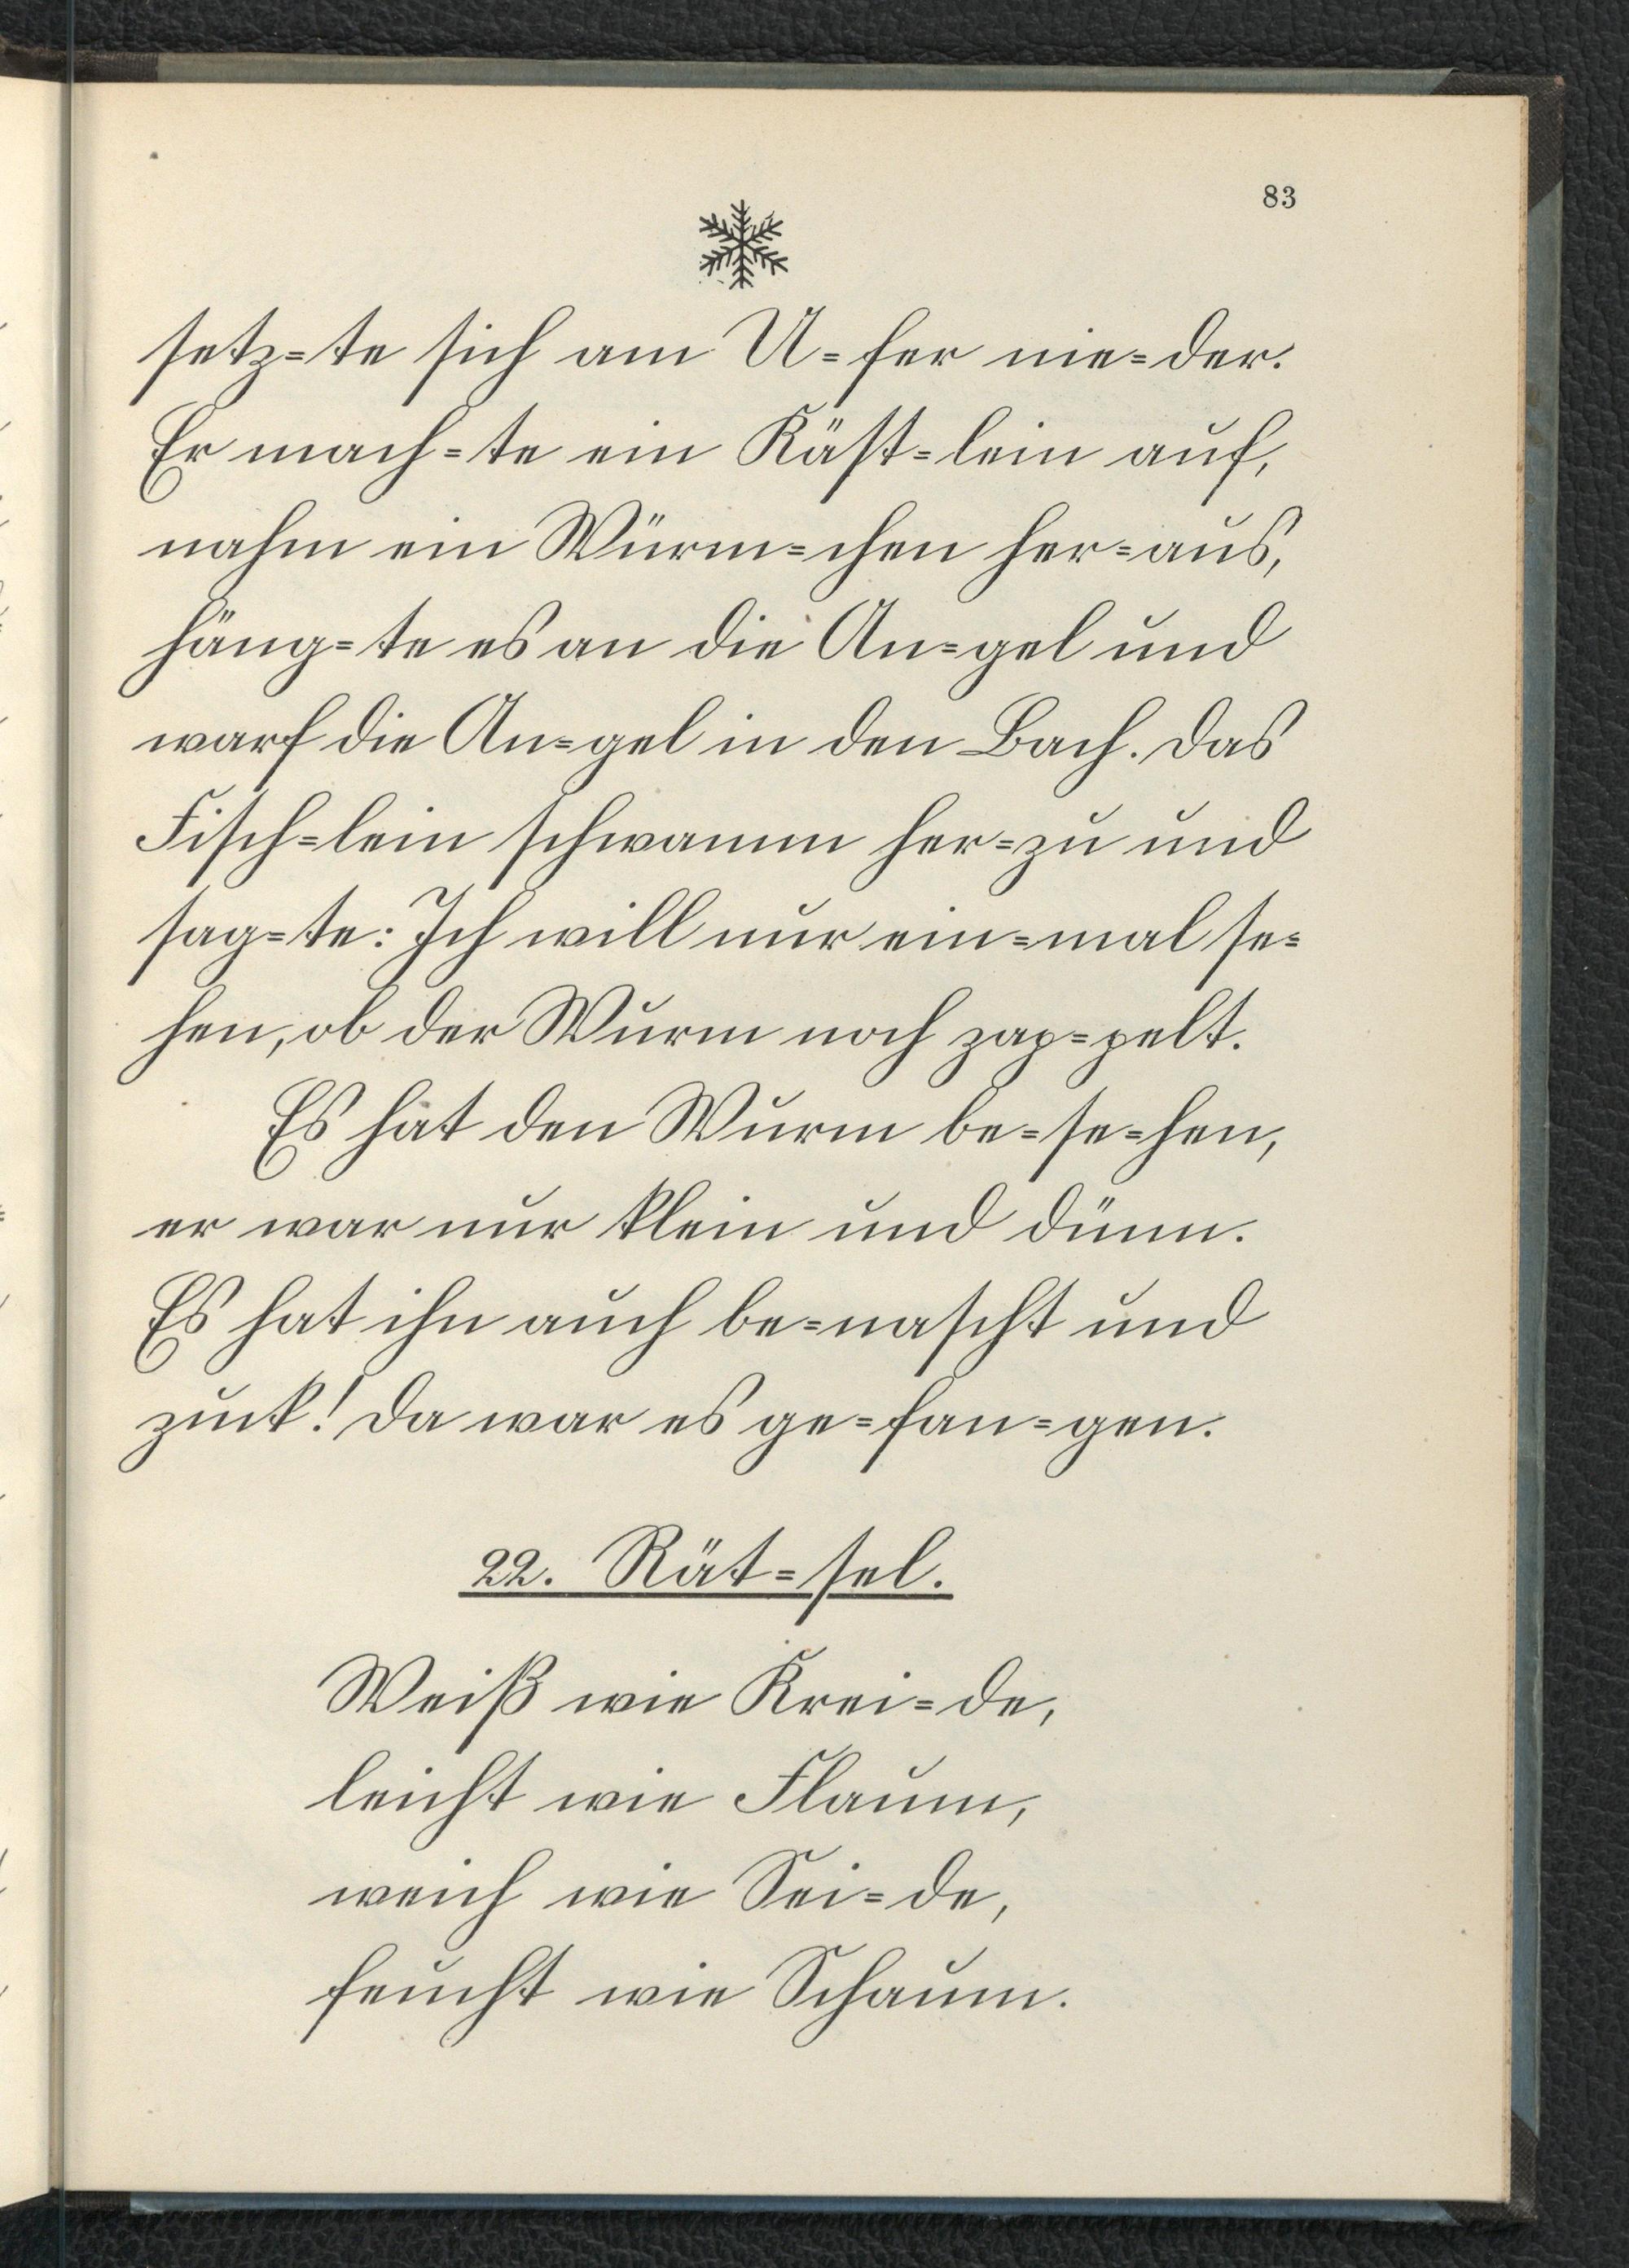 83
setz=te sich am U=fer nie=der.
Er mach=te ein Käst=lein auf,
nahm ein Würm=chen her=aus,
häng=te es an die An=gel und
warf die An=gel in den Bach. Das
Fisch=lein schwamm her=zu und
sag=te: Ich will nur ein=mal se=
hen, ob der Wurm noch zap=pelt.
Es hat den Wurm be=se=hen,
er war nur klein und dünn.
Es hat ihn auch be=nascht und
zuck! Da war es ge=fan=gen.
22. Rät=sel.
Weiß wie Krei=de,
leicht wie Flaum,
weich wie Sei=de,
feucht wie Schaum.